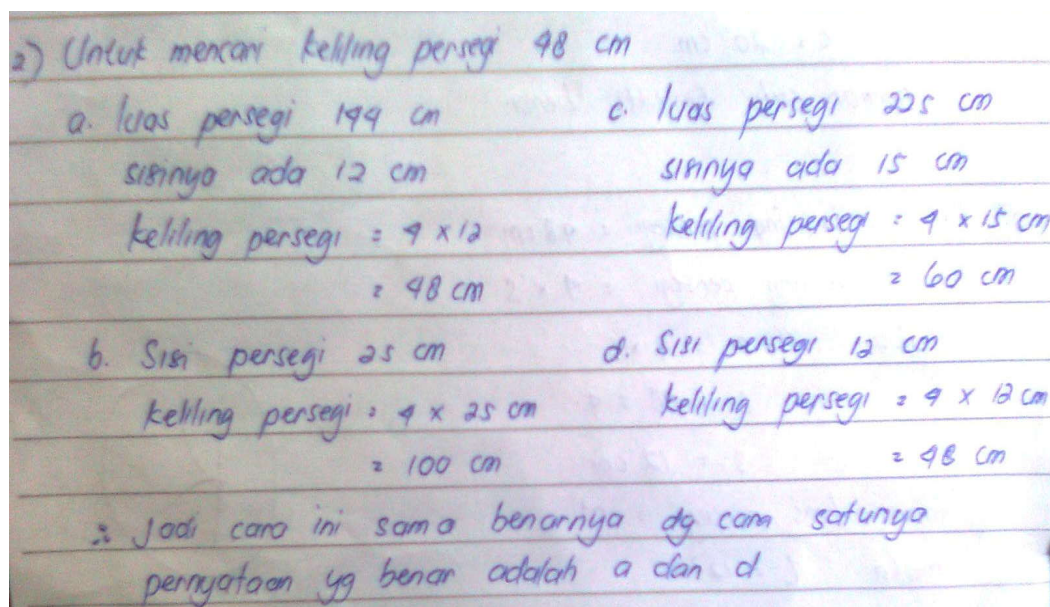 2) Untuk mencari keliling persegi 48 cm
a. luas persegi 144 cm
sisinya ada 12 cm
keliling persegi = 4 x 12
= 48 cm
b. Sisi persegi 25 cm
keliling persegi = 4 x 25 cm
= 100 cm
c. luas persegi 225 cm
sisinya ada 15 cm
keliling persegi = 4 x 15 cm
= 60 cm
d. Sisi persegi 12 cm
keliling persegi = 4 x 12 cm
= 48 cm
∴ Jadi cara ini sama benarnya dg cara satunya
pernyataan yg benar adalah a dan d